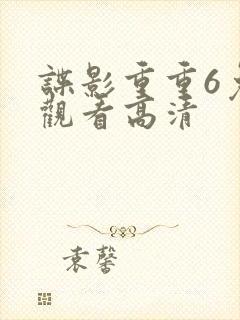 諜影重重6
觀看高清
袁馨